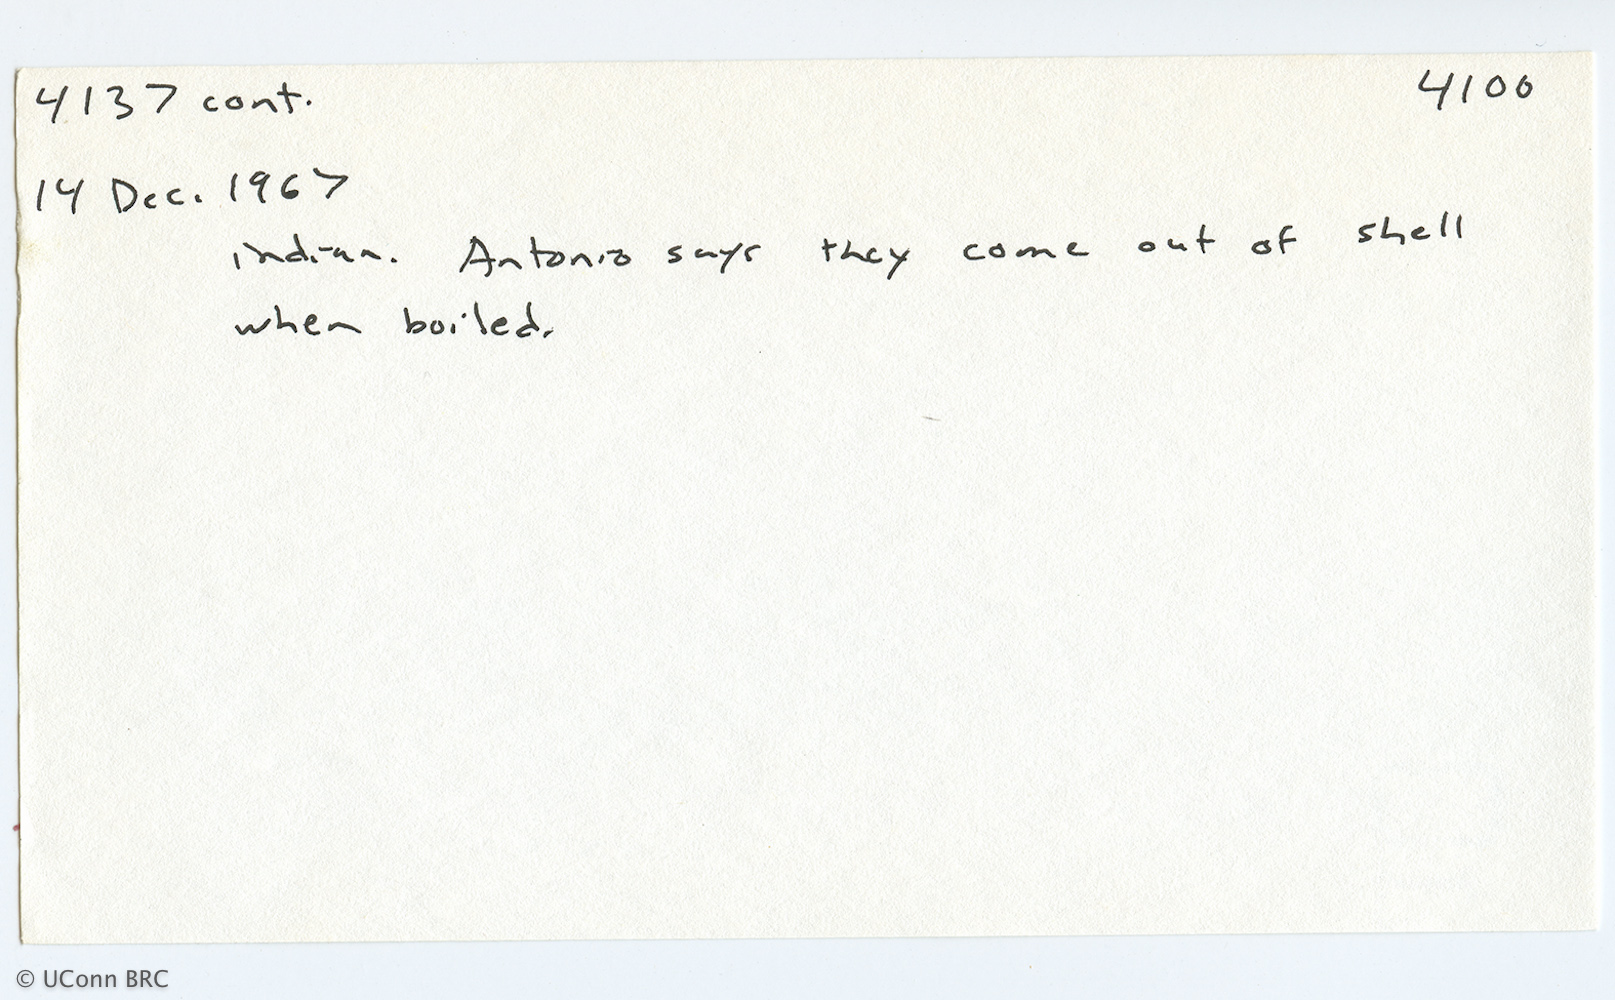 4137 cont.
4100
14 Dec. 1967
indian. Antonio says they come out of shell
when boiled.
© UConn BRC